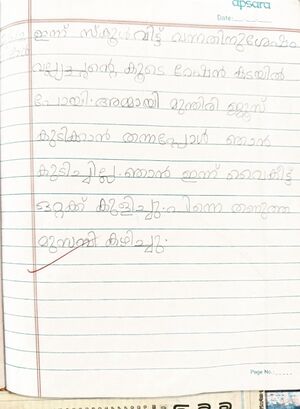 apsara
Date:
ഇന്ന് സ്കൂൾ വിട്ട് വന്നതിനുശേഷം
വല്യച്ഛന്റെ കൂടെ റേഷൻ കടയിൽ
പോയി. അമ്മായി മുന്തിരി ജ്യൂസ്
കുടിക്കാൻ തന്നപ്പോൾ ഞാൻ
കുടിച്ചില്ല. ഞാൻ ഇന്ന് വൈകിട്ട്
ഒറ്റക്ക് കുളിച്ചു. പിന്നെ തണുത്ത
മുസമ്പി കഴിച്ചു.
Page No.: